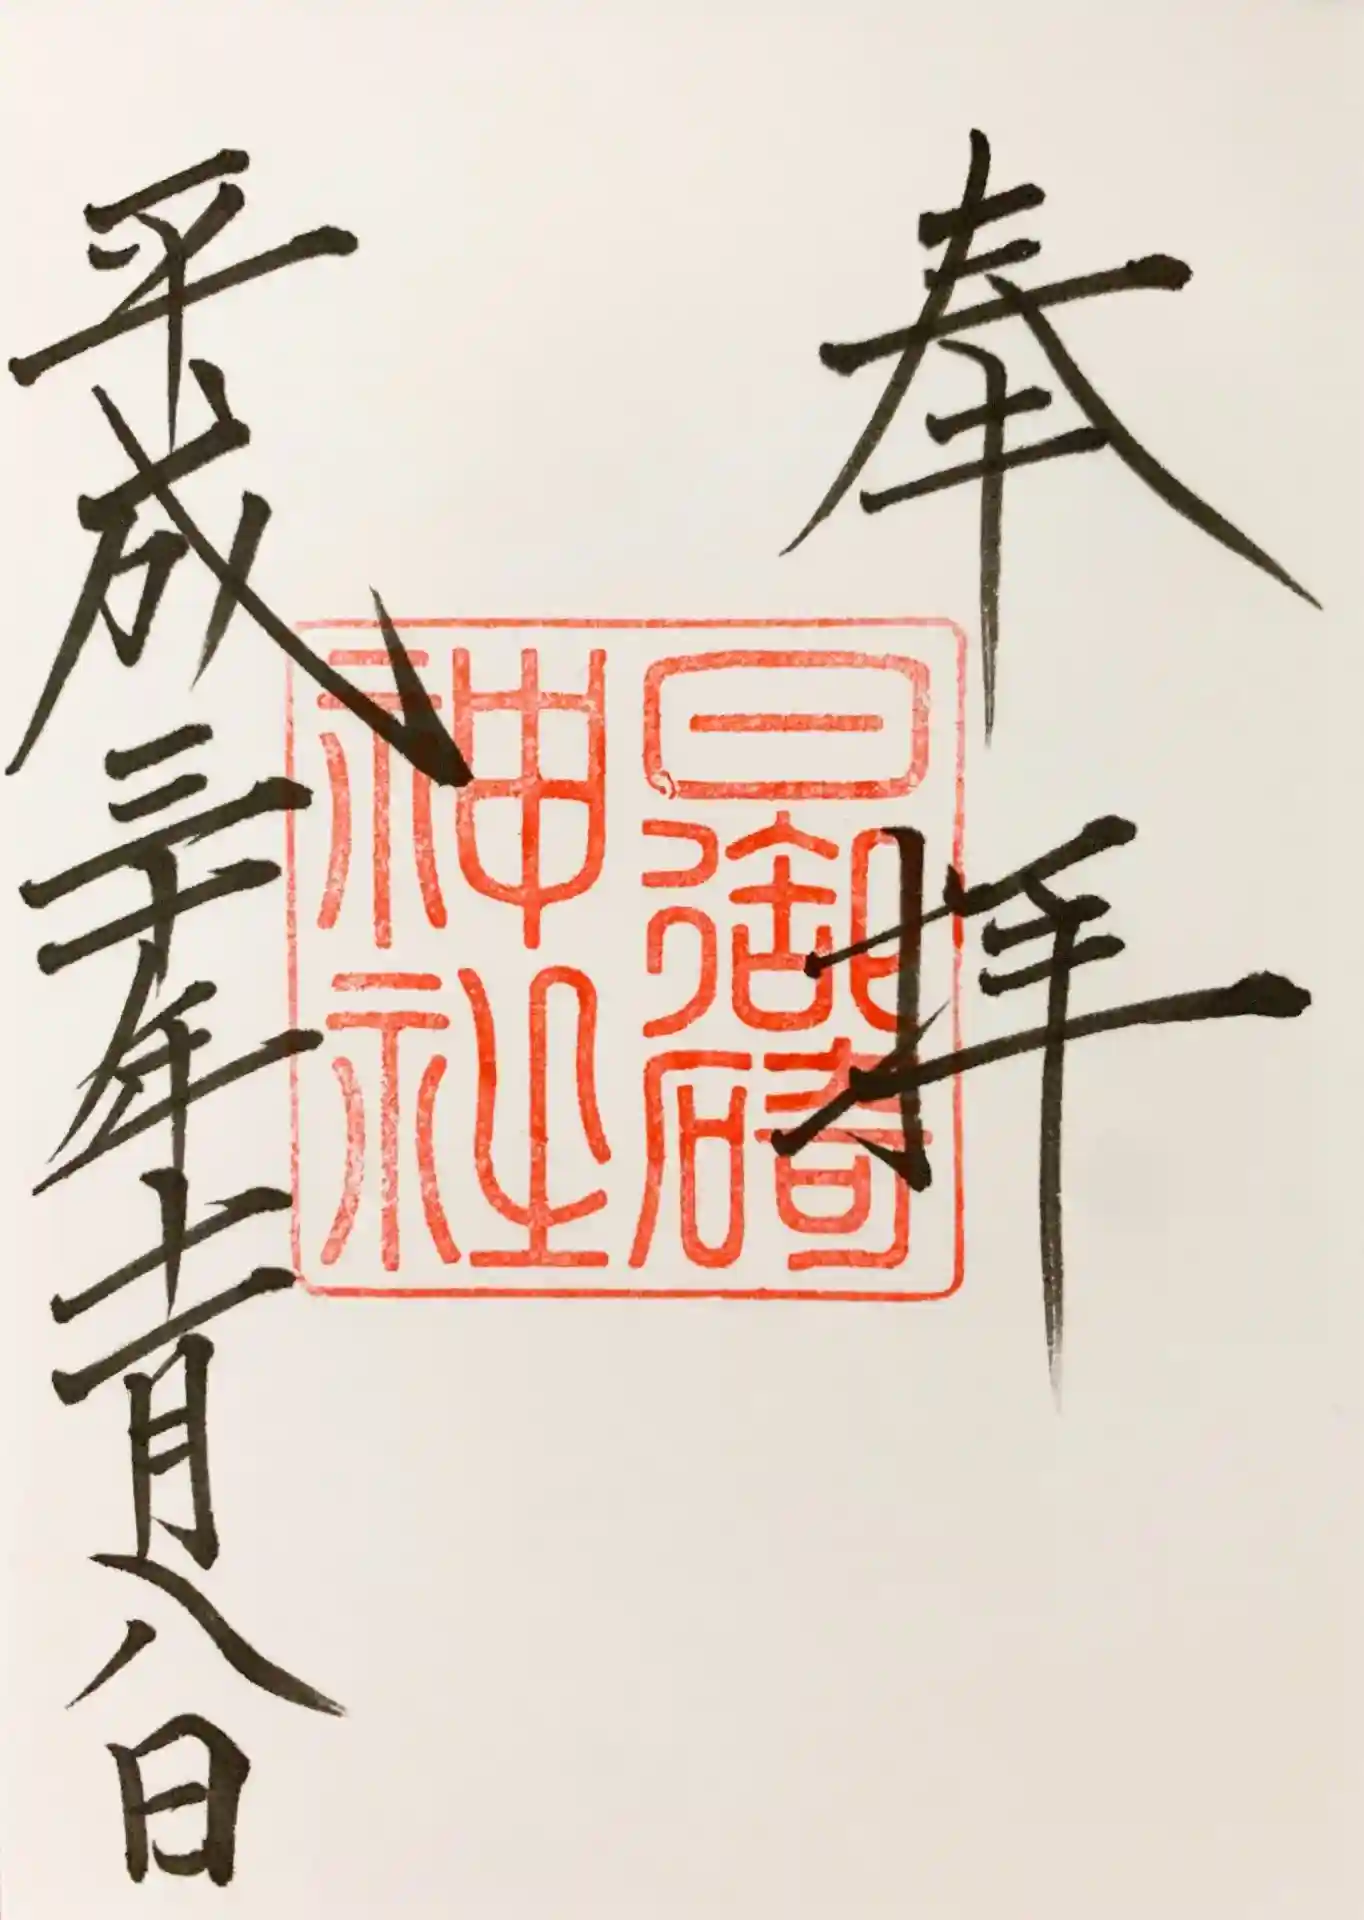 奉拝
日御碕
神社
平成三十年十一月八日